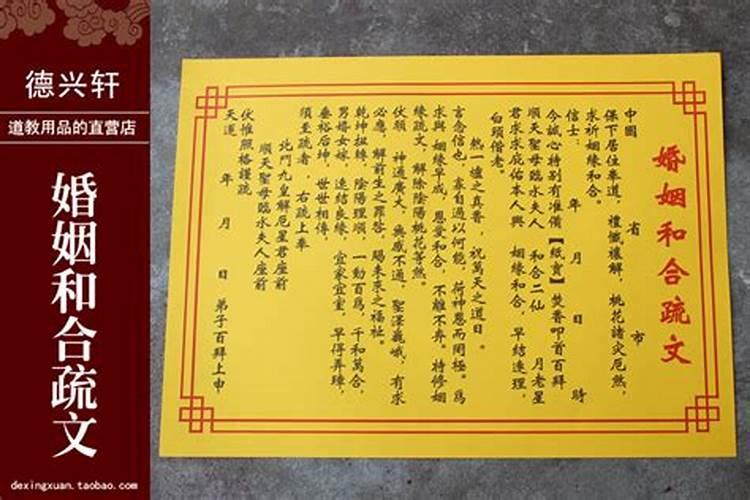 德兴轩
道教用品的直营店
婚姻和合疏文
dexingxuan.taobao.com
婚姻和合疏文
中國 省 市
保下居住奉道，禮懺禳解，桃花諸灾厄煞，
求祈姻緣和合。
信士： 年 月 日 時
今誠心特别有准備【紙寶】焚香叩首百拜
順天聖母臨水夫人 和合二仙 月老星
君求求庇佑本人與 姻緣和合，早結連理，
白頭偕老。
熱一爐之真香，祝萬天之道日。
言念信也，拿自過以何能，荷神恩而罔極。爲
求與 姻緣早成，恩愛和合，不離不弃。特修姻
緣疏文，解除陰陽桃花等煞。
伏願 神通廣大，無感不通，聖澤巍峨，有求
必應，解前生之罪咎，賜未來之福祉。
乾坤扭轉，陰陽理順，一動百爲，千和萬合，
男婚女嫁，速結良緣，宜家宜室，早得弄璋，
垂裕后坤，世世相傳，
須至疏者，右疏上奉
北鬥九皇解厄星君座前
順天聖母臨水夫人座前
伏惟照格謹疏
天運 年 月 日 弟子百拜上申